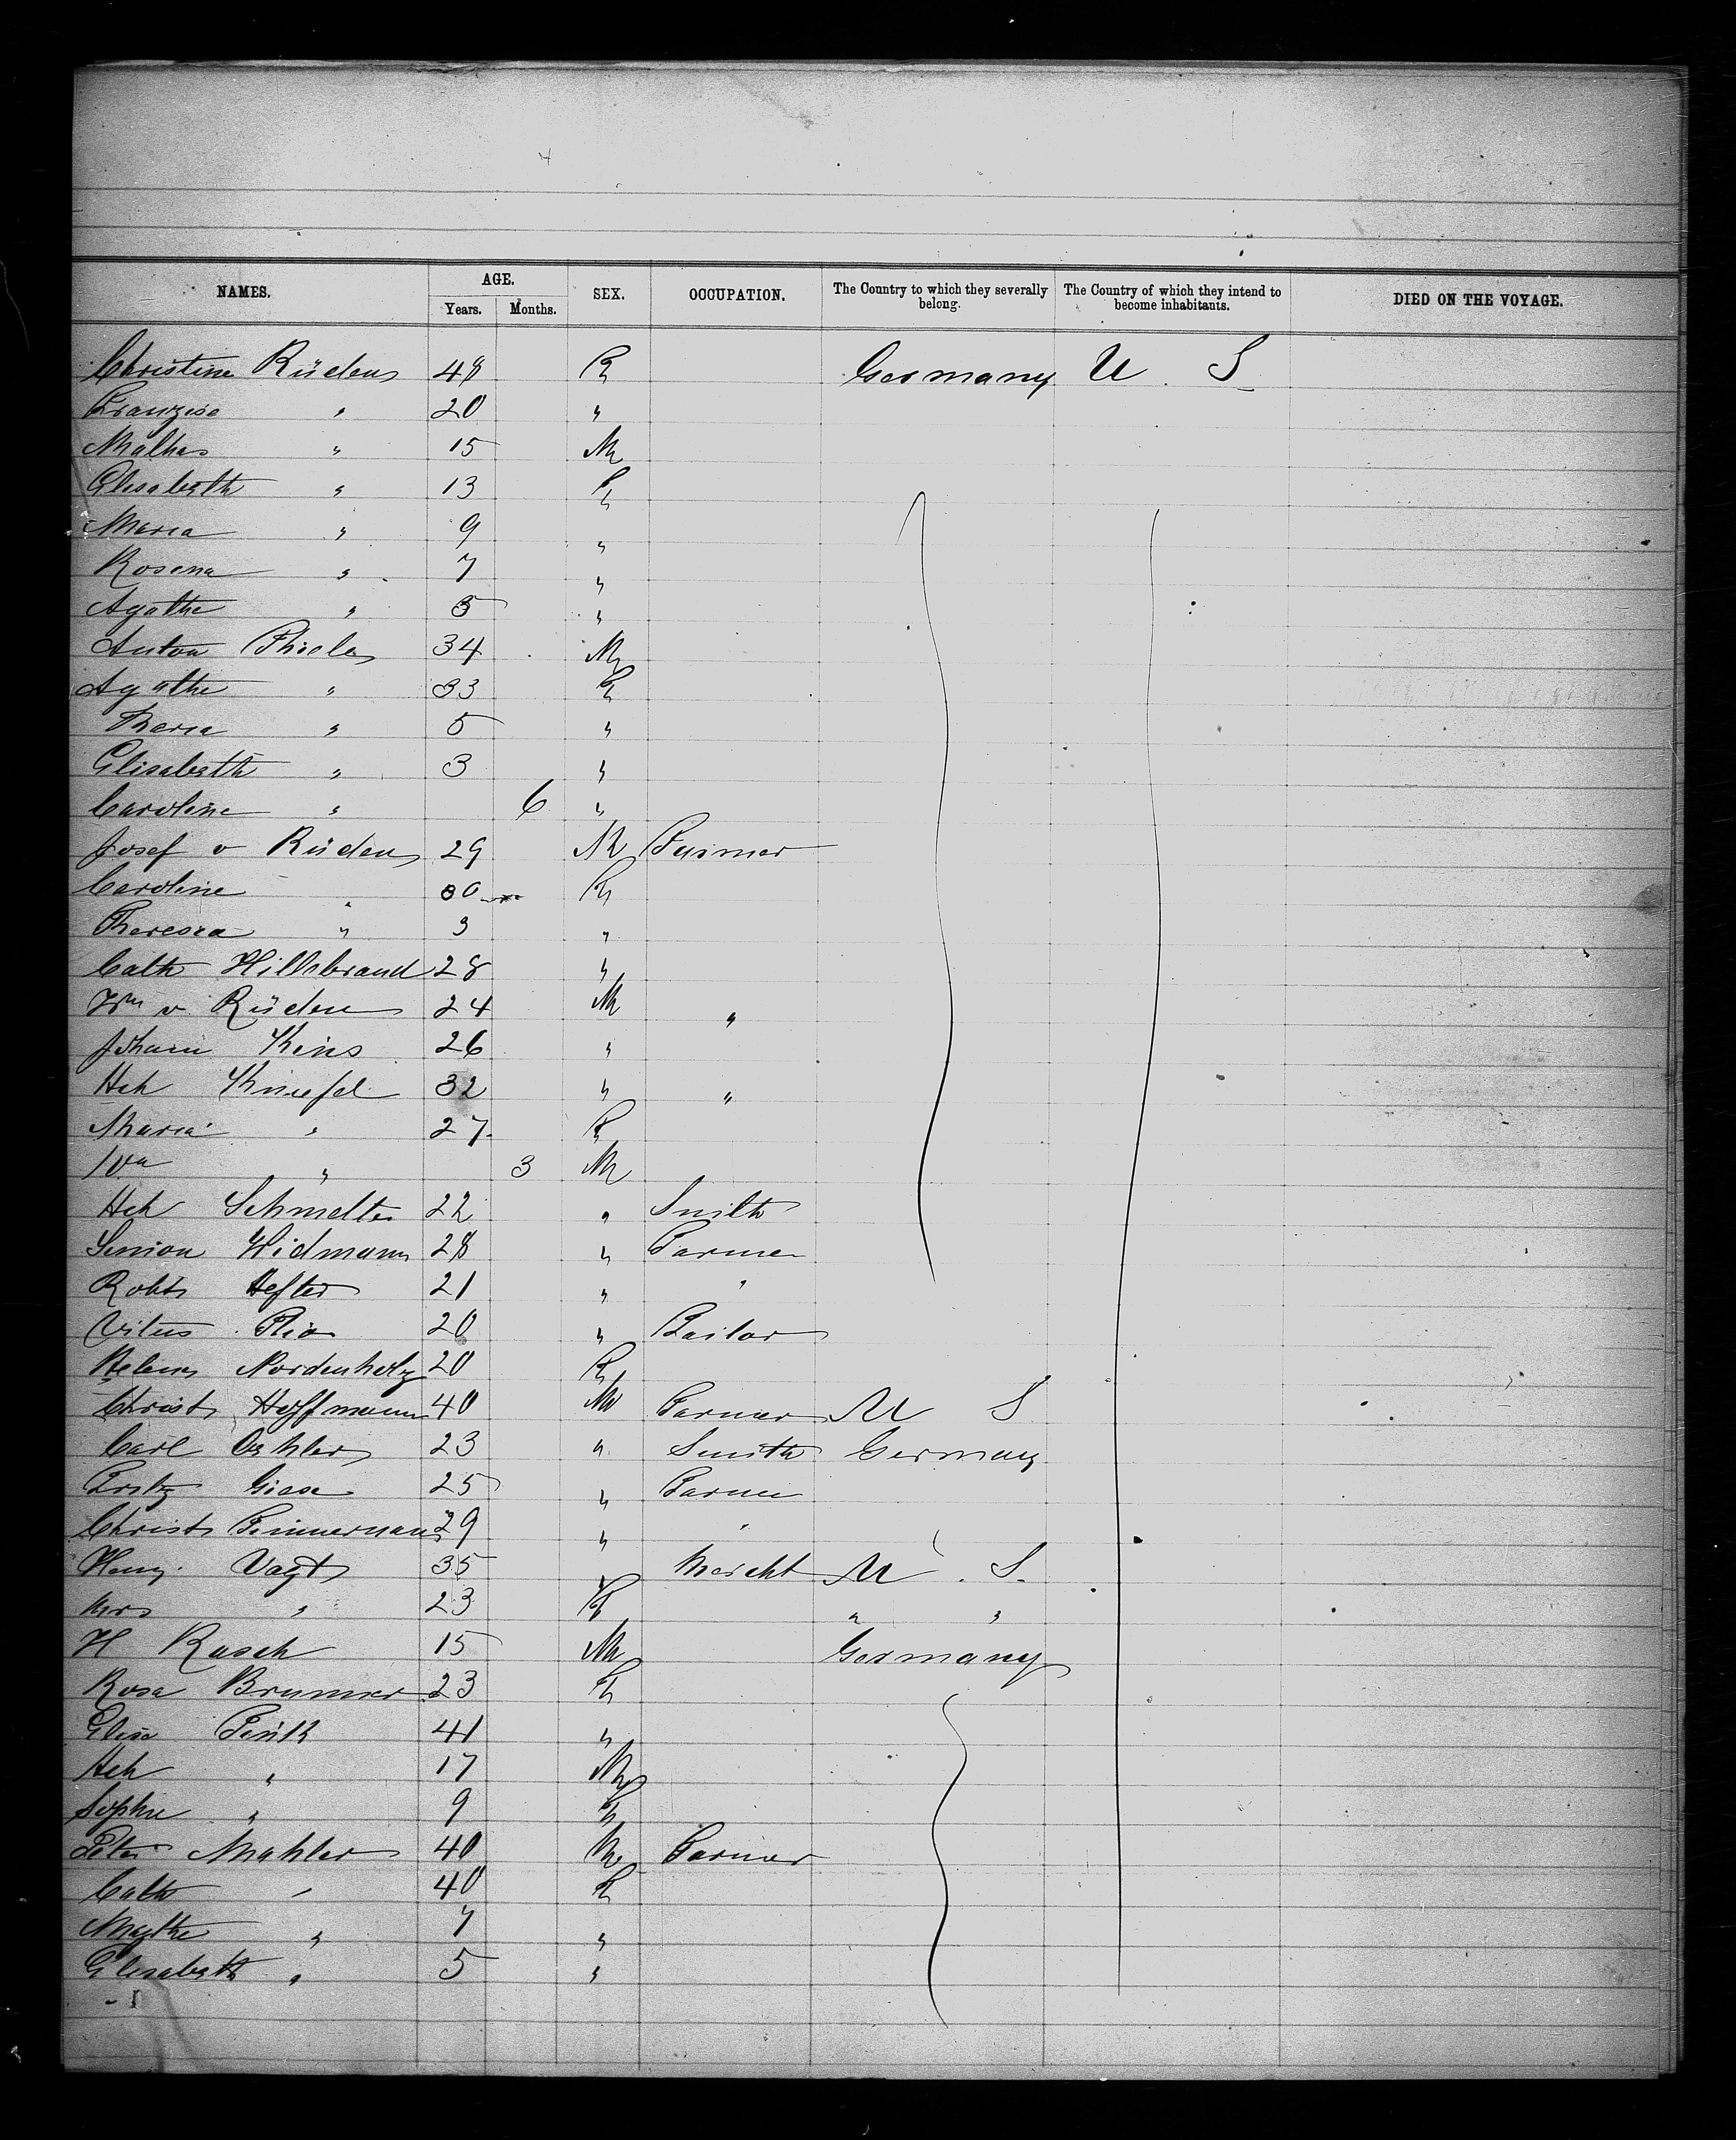 NAMES. AGE. SEX. OCCUPATION. The Country to which they severally belong. The Country of which they intend to become inhabitants. DIED ON THE VOYAGE.
Years. Months.
Christine Rüden 48 F Germany U. S
" 20 "
" 15 M
Elisabeth " 13 F
Maria " 9 "
Rosena " 7 "
Agathe " 5 "
Anton Thiele 34 M
Agathe " 33 F
" 5 "
Elisabeth " 3 "
Caroline " 6 "
Josef v Rüden 29 M Farmer
Caroline " 30 F
Theresia " 3 "
Cath Hillebrand 28 "
Wm v Rüden 24 M "
Johann 26 "
Hch Kniefel 32 " "
Maria " 27 F
" 3 M
Hch Schmelter 22 " Smith
Simon Widmann 28 " Farmer
Robt Hefter 21 " "
Vitus 20 " Tailor
Helene Nordenholz 20 F
Christ Hoffmann 40 M Farmer U S
Carl Oehler 23 " Smith Germany
Fritz Giese 25 " Farmer
Christ Timmermann 29 " "
Henry Vagt 35 " Mercht U. S.
Mrs " 23 F " "
H Rasch 15 M Germany
Rosa Brunner 23 F
Elise Fink 41 "
Hch " 17 M
Sophie " 9 F
Peter Mahler 40 M Farmer
Cath " 40 F
" 7 "
Elisabeth " 5 "